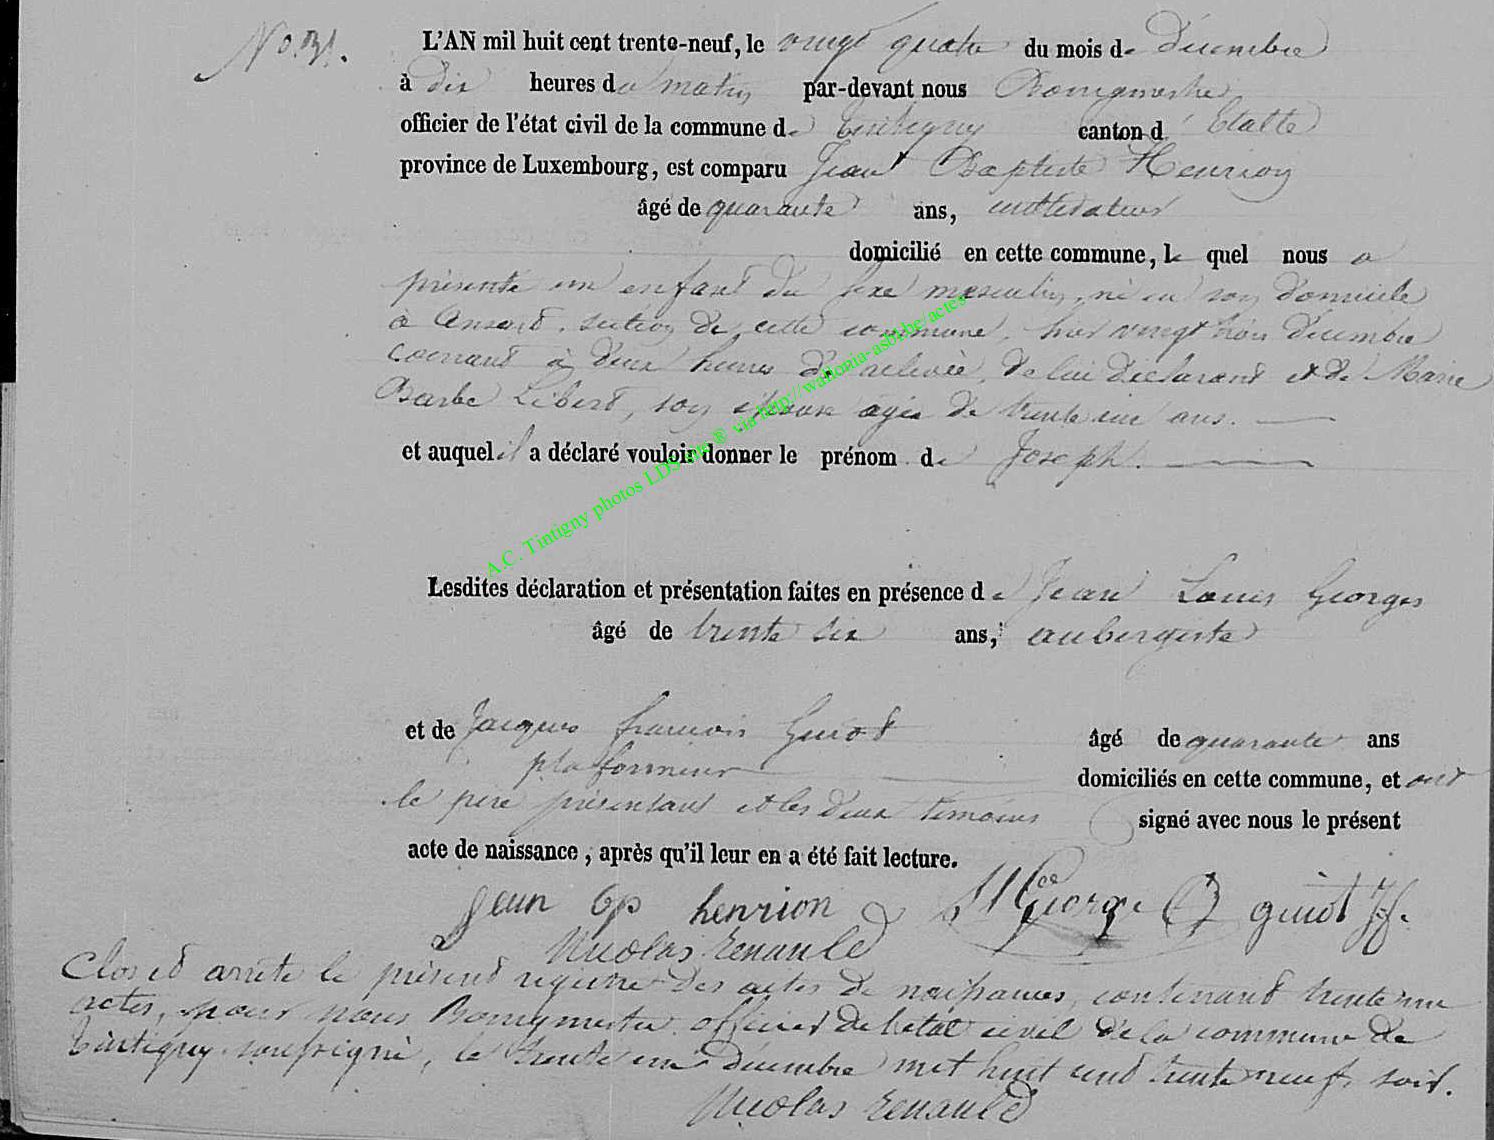 No. 31. L'AN mil huit cent trente-neuf, le vingt quatre du mois de décembre
à dix heures du matin par-devant nous Bourgmestre
officier de l'état civil de la commune de Tintigny canton d' Etalle
province de Luxembourg, est comparu Jean Baptiste Henrion
âgé de quarante ans, cultivateur
domicilié en cette commune, le quel nous a
présenté un enfant du sexe masculin, né en son domicile
à Ansart, section de cette commune, hier vingt trois décembre
courant à deux heures de relevée, de lui déclarant et de Marie
Barbe Libert, son épouse agée de trente un ans.
et auquel il a déclaré vouloir donner le prénom de Joseph.
Lesdites déclaration et présentation faites en présence de Jean Louis Georges
âgé de trente six ans, aubergiste
et de Jacques francois Guiot âgé de quarante ans
plafonneur domiciliés en cette commune, et ont
le père présentant et les deux témoins signé avec nous le présent
acte de naissance, après qu'il leur en a été fait lecture.
Jean Bp henrion George guiot Jf.
Nicolas Renauld
Clos et arrêté le présent registre des actes de naissances, contenant trente une
actes, par nous Bourgmestre officier de l'etat civil de la commune de
Tintigny soussigné, le trente un décembre mil huit cent trente neuf, soir.
Nicolas Renauld
A.C. Tintigny photos LDS via http://wallonia-asbl.be/actes